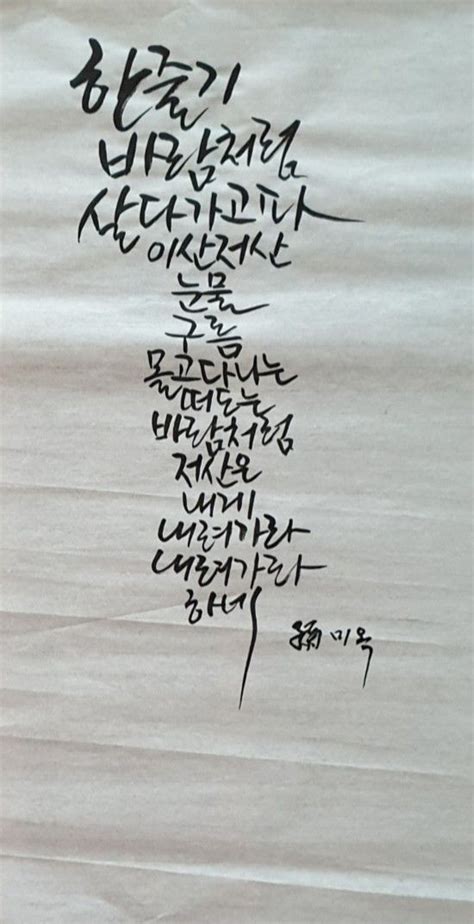 한줄기
바람처럼
살다가고파
이산저산
눈물
구름
몰고다니는
떠도는
바람처럼
저산은
내게
내려가라
내려가라
하네
미옥